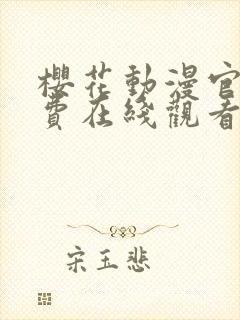 櫻花動漫官
費在綫觀看
宋玉悲